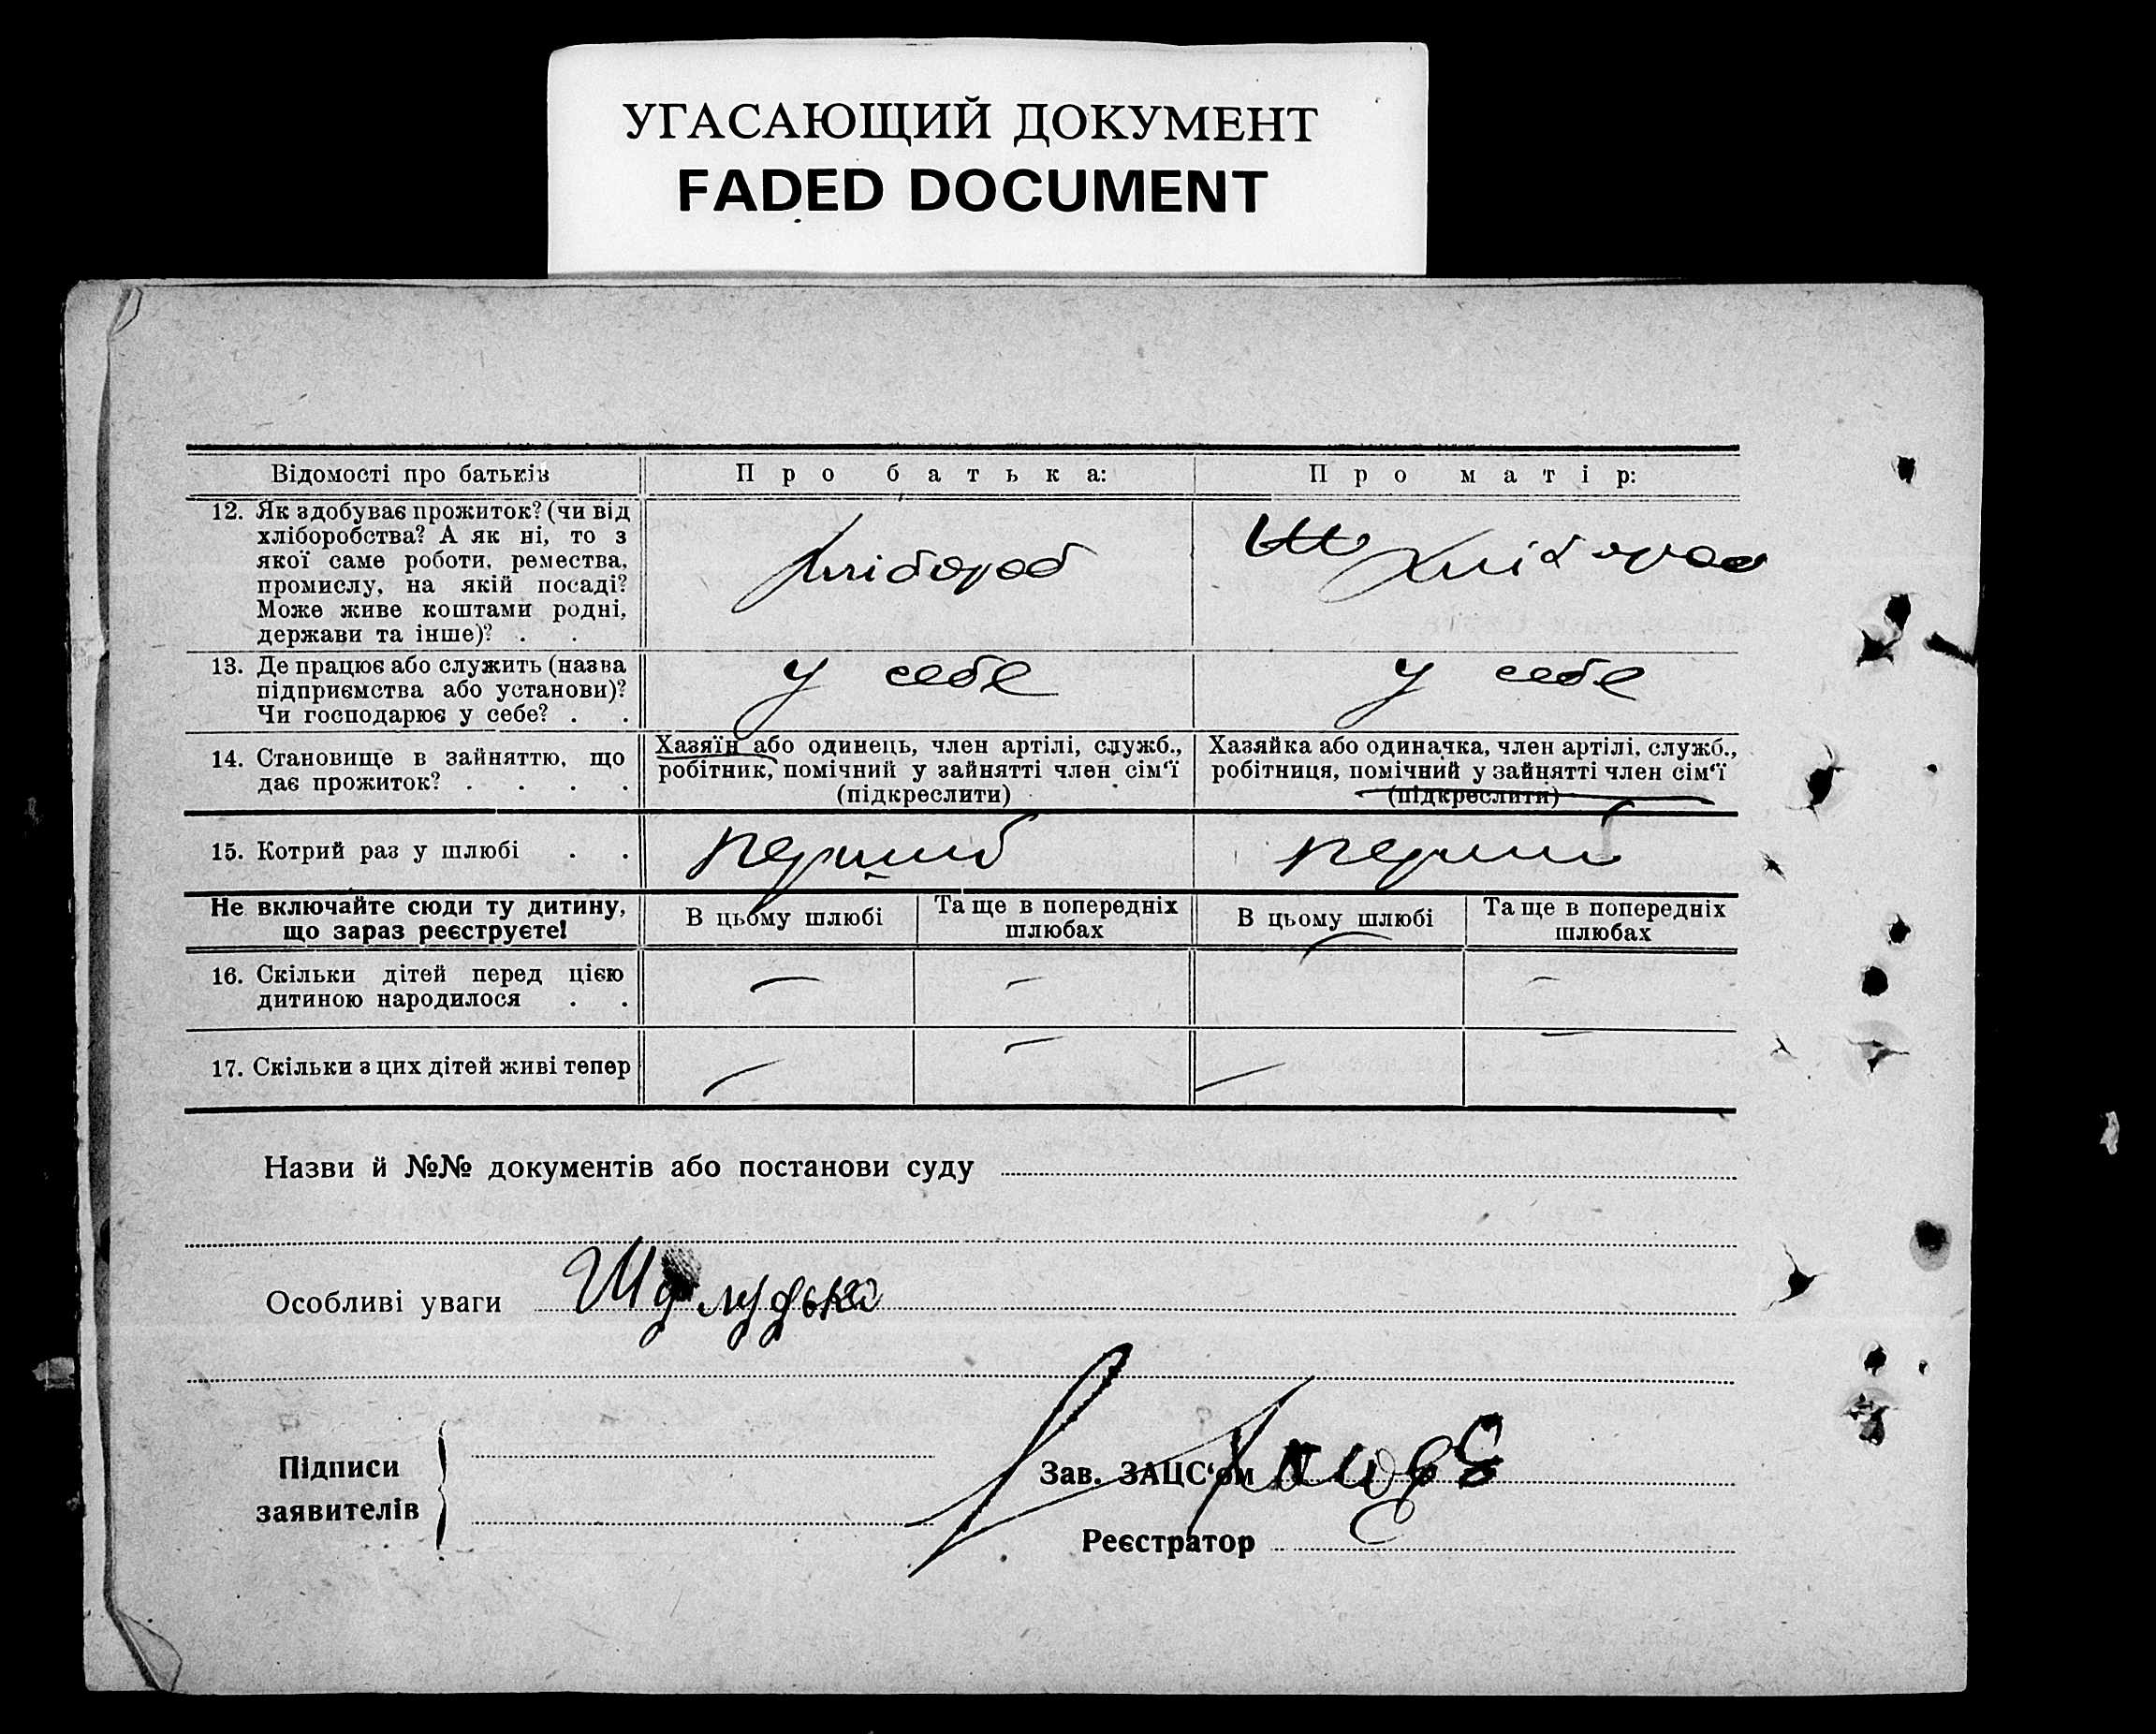 УГАСАЮЩИЙ ДОКУМЕНТ
FADED DOCUMENT
Відомості про батьків
Про батька:
Про матір:
12. Як здобуває прожиток? (чи від
хліборобства? А як ні, то з
якої саме роботи, ремества,
промислу, на якій посаді?
Може живе коштами родні,
держави та інше)? . .
хлібороб
хлібороб
13. Де працює або служить (назва
підприємства або установи)?
Чи господарює у себе? . .
у себе
у себе
14. Становище в зайняттю, що
дає прожиток? . . . .
Хазяїн або одинець, член артілі, служб.,
робітник, помічний у зайнятті член сім‘ї
(підкреслити)
Хазяйка або одиначка, член артілі, служб.,
робітниця, помічний у зайнятті член сім‘ї
(підкреслити)
15. Котрий раз у шлюбі . .
перший
перший
Не включайте сюди ту дитину,
що зараз реєструєте!
В цьому шлюбі
Та ще в попередніх
шлюбах
В цьому шлюбі
Та ще в попередніх
шлюбах
16. Скільки дітей перед цією
дитиною народилося . .
— — — —
17. Скільки з цих дітей живі тепер
— — — —
Назви й №№ документів або постанови суду
Особливі уваги
Підписи
заявителів
Зав. ЗАЦС‘ом
Реєстратор